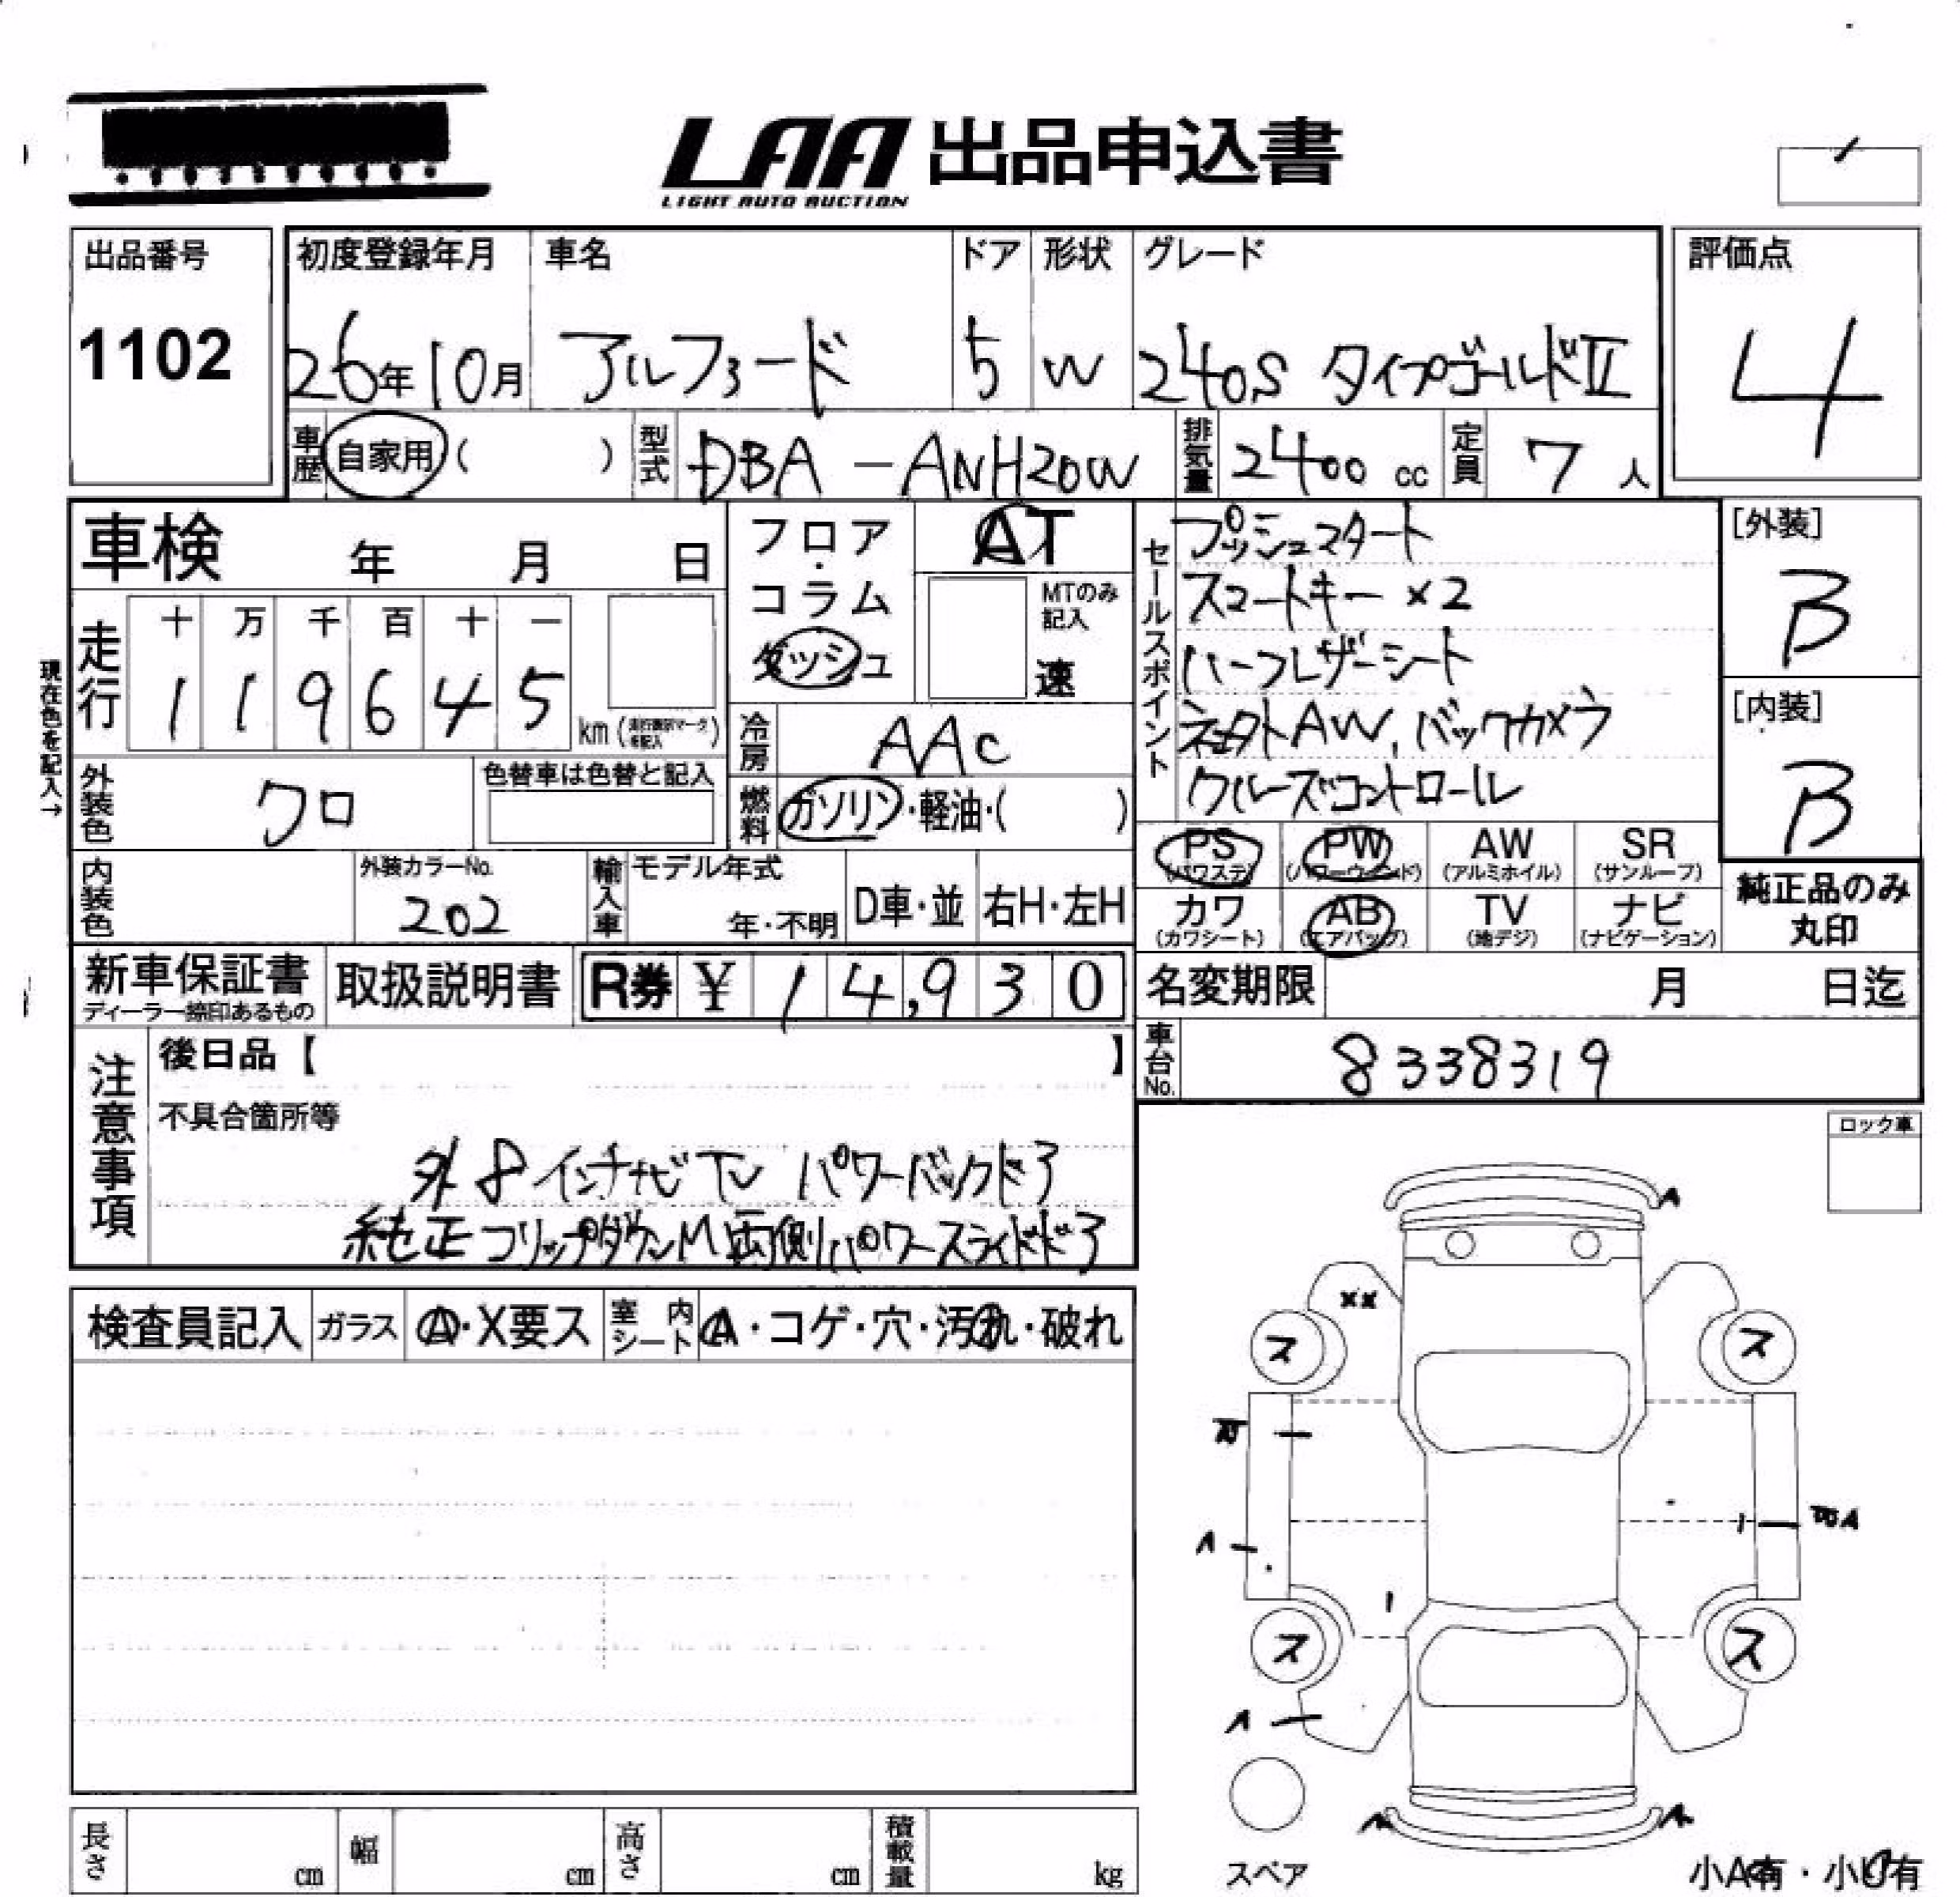 LAA 出品申込書
LIGHT AUTO AUCTION
出品番号 1102
初度登録年月 26年10月
車名 アルファード
ドア 5
形状 W
グレード 240S タイプゴールドⅡ
評価点 4
車歴 自家用( )
型式 DBA-ANH20W
排気量 2400 cc
定員 7 人
車検 年 月 日
フロア・コラム ダッシュ
AT
MTのみ記入
速
走行 十 万 千 百 十 一
1 1 9 6 4 5 km
現在色を記入→
冷房 AAC
燃料 ガソリン・軽油・( )
外装色 クロ
色替車は色替と記入
内装色
外装カラーNo. 202
輸入車 モデル年式
年・不明
D車・並
右H・左H
セールスポイント
プッシュスタート
スマートキー ×2
ハーフレザーシート
AW、バックカメラ
クルーズコントロール
[外装]
B
[内装]
B
PS (パワステ) PW (パワーウインド) AW (アルミホイル) SR (サンルーフ)
カワ (カワシート) AB (エアバッグ) TV (地デジ) ナビ (ナビゲーション)
純正品のみ丸印
新車保証書
ディーラー捺印あるもの
取扱説明書
R券 ¥ 14,930
名変期限 月 日迄
車台No. 8338319
注意事項
後日品【 】
不具合箇所等
外 8インチナビTV パワーバックドア
純正フリップダウンM 両側パワースライドドア
ロック車
検査員記入 ガラス A・X要ス 室内シート A・コゲ・穴・汚れ・破れ
A
××
ス ス
A
A
ス ス
A
A A
スペア
小A有・小U有
長さ cm 幅 cm 高さ cm 積載量 kg